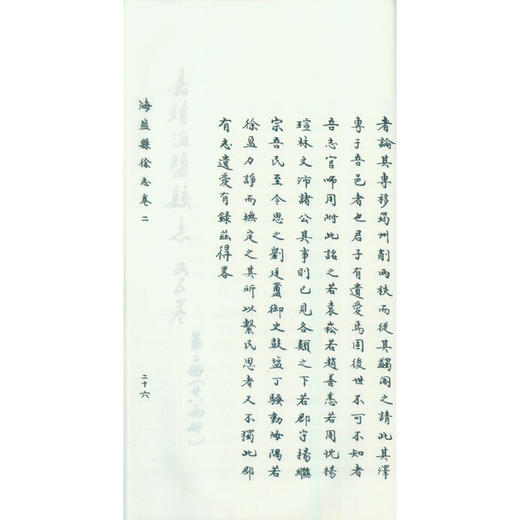 者論其專移筠州削兩秩而從其蠲閣之請此其澤
專于吾邑者也君子有遺愛焉固後世不可不知者
吾志官師用附此詒之若袁崧若趙善悉若周忱楊
瑄林文沛諸公其事則已見各類之下若郡守楊繼
宗吾民至今思之劉廷璽御史鼓盜丁騷動汝隅若
徐盈力諍而撫定之其所以繫民思者又不獨此郡
有志遺愛有錄茲得畧
海盐縣徐志卷二
二十六
嘉靖海鹽縣志
第二册(共八两册)